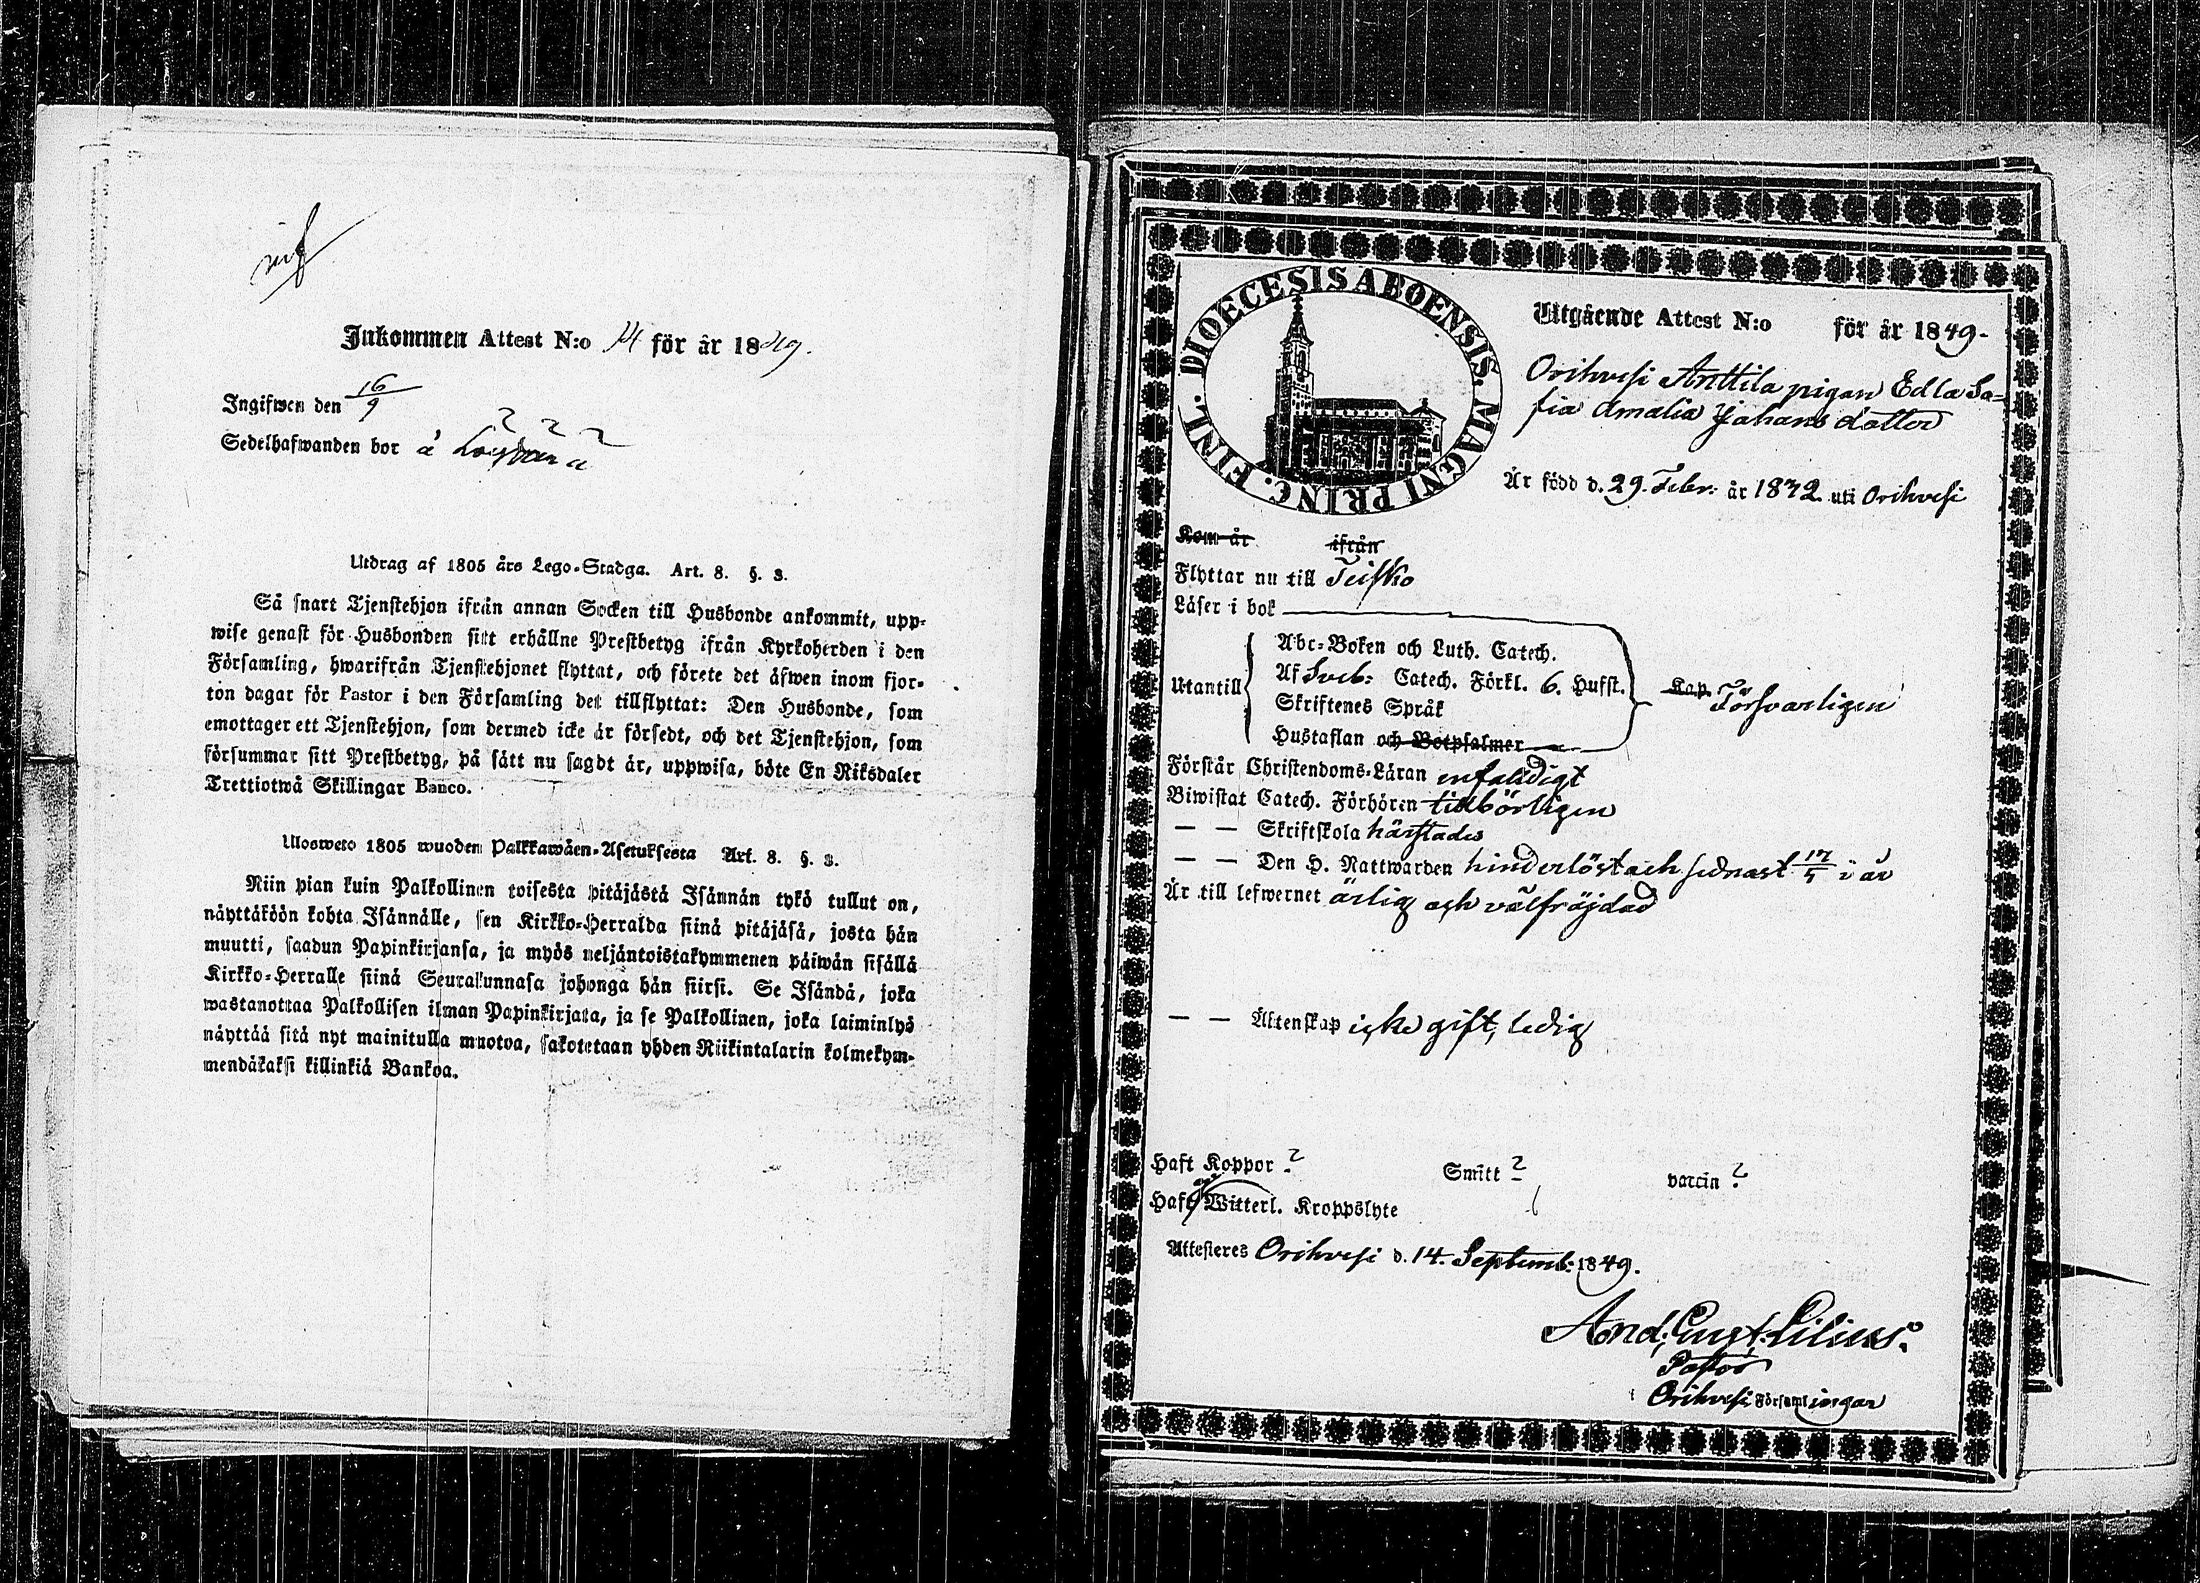 Inkommen Attest N:o 14 för år 1849.
Ingifwen den 16/9
Sedelhafwanden bor å
Utdrag af 1805 års Lego-Stadga. Art. 8. §. 3.
Så snart Tjenstehjon ifrån annan Socken till Husbonde ankommit, upp-
wise genast för Husbonden sitt erhållne Prestbetyg ifrån Kyrkoherden i den
Församling, hwarifrån Tjenstehjonet flyttat, och förete det äfwen inom fjor-
ton dagar för Pastor i den Församling det tillflyttat: Den Husbonde, som
emottager ett Tjenstehjon, som dermed icke är försedt, och det Tjenstehjon, som
försummar sitt Prestbetyg, på sätt nu sagdt är, uppwisa, böte En Riksdaler
Trettiotwå Skillingar Banco.
Ulosweto 1805 wuoden Palkkawäen-Asetuksesta Art. 8. §. 3.
Niin pian kuin Palkollinen toisesta pitäjästä Isännän tykö tullut on,
näyttäköön kohta Isännälle, sen Kirkko-Herralda siinä pitäjäsä, josta hän
muutti, saadun Papinkirjansa, ja myös neljäntoistakymmenen päiwän sisällä
Kirkko-Herralle siinä Seurakunnasa johonga hän siirsi. Se Isändä, joka
wastanottaa Palkollisen ilman Papinkirjata, ja se Palkollinen, joka laiminlyö
näyttää sitä nyt mainitulla muotoa, sakotetaan yhden Riikintalarin kolmekym-
mendäkaksi killinkiä Bankoa.
DIOECESIS ABOENSIS. MAGNI PRINC. FINL.
Utgående Attest N:o för år 1849-
Orihvesi Anttila pigan Edla So-
fia Amalia Johans dotter
Är född d. 29. Febr: år 1832 uti Orihvesi
Kom år ifrån
Flyttar nu till Teisko
Läser i bok
Abc-Boken och Luth. Catech.
Utantill Af Sveb: Catech. Förkl. 6. Hufst. Kap. Försvarligen
Skriftenes Språk
Hustaflan och Botpsalmer
Förstår Christendoms-Läran enfaldigt
Biwistat Catech. Förhören tillbörligen
— — Skriftskola härstädes
— — Den H. Nattwarden hinderlöst och sednast 17/5 i år
Är till lefwernet ärlig och välfräjdad
— — Äktenskap icke gift, ledig
Haft Koppor ? Smitt ? vaccin ?
Haft Witterl. Kroppslyte
Attesteres Orihvesi d. 14. Septemb: 1849.
And. Gust. Lilius.
Pastor
i Orihvesi Församlingar